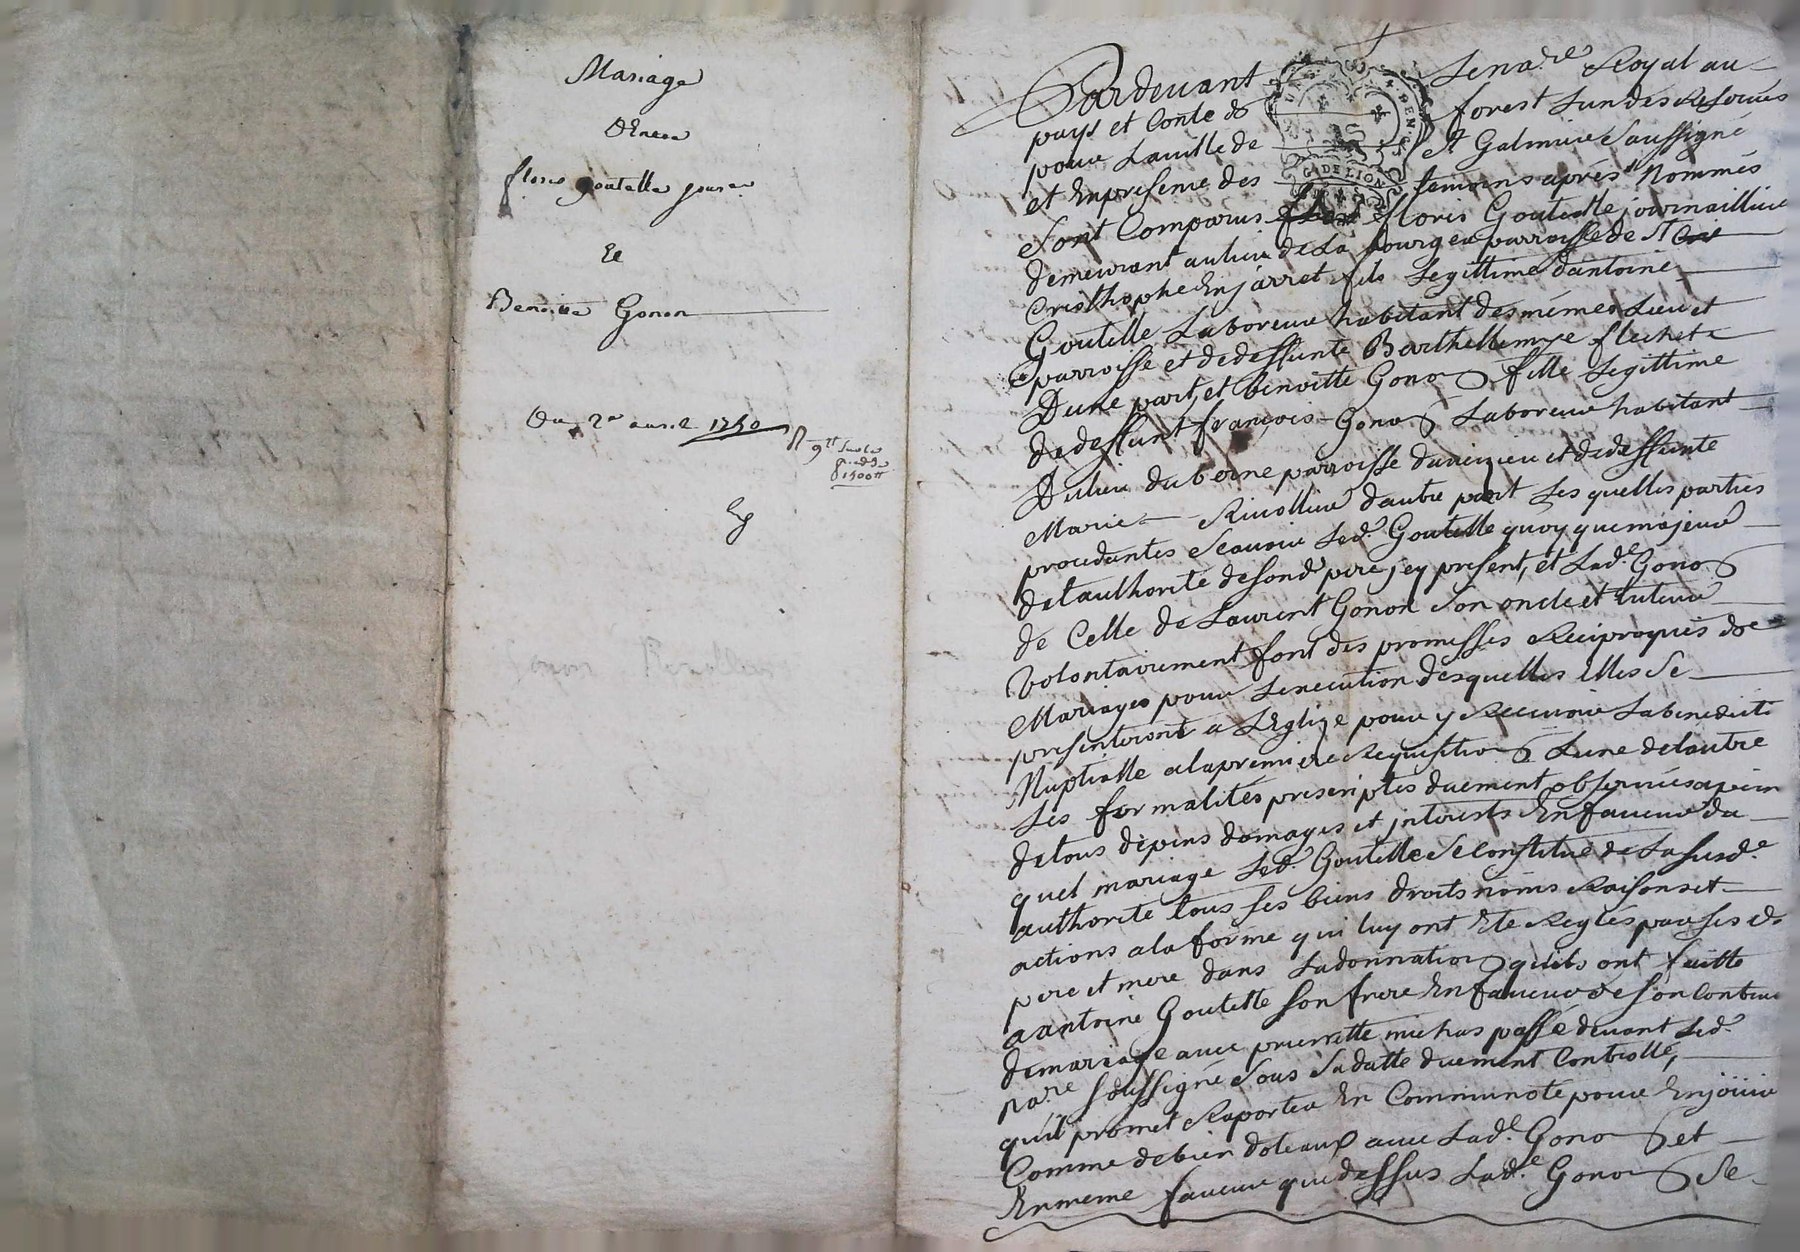 Mariage
Entre
floris goutelle
Et
Benoitte Gonon
Du 2e auril 1750
1500tt
Gonon
Pardevant Le na.re Royal au
pays et Conté de forest Lun des Reserués
pour Lauille de St Galmier Soussigné
et Enpresence des temoins aprés Nommés
Sont Comparus floris Goutelle journaillier
demeurant aulieu de La bourgea parroisse de St
Cristhophe Enjarret fils Legittime dantoine
Goutelle Laboreur habitant desmémes Lieu et
parroisse et dedeffunte Barthellemye flechet
Dune part, et benoitte Gonon fille Legittime
dedeffunt françois Gonon Laboreur habitant
Dulieu du berne parroisse daueizieu et dedeffunte
Marie Riuollier dautre part Les quelles parties
procedantes Scauoir Led. Goutelle quoy que majeur
delauthorité desond. pere jcy present, et Lad.e Gonon
de Celle de Laurent Gonon Son oncle et tuteur
Volontairement font des promesses Reciproques de
Mariages pour Lexecution desquelles Elles Se
presenteront a LEglize pour y Receuoir Labenedicti
Nuptialle alapremiere Requisition Lune delautre
Les formalités prescriptes duement obseruées apein
detous dépens domages et jnterests Enfaueur du
quel mariage Led. Goutelle Seconstitue de Lasusd.e
authorité tous ses biens droits noms Raisons et
actions alaforme qui luy ont Eté Reglés par ses d.
pere et mere dans Ladonnation quils ont faitte
aantoine Goutelle son frere Enfaueur de son Contrat
demariage auec pierrette michas passé deuant Led.
na.re soussigné Sous Sadatte duement Controllé,
quil promet Raporter En Communoté pour Enjöuir
Comme debien doteaux auec Lad.e Gonon et
Enmeme faueur que dessus Lad.e Gonon Se